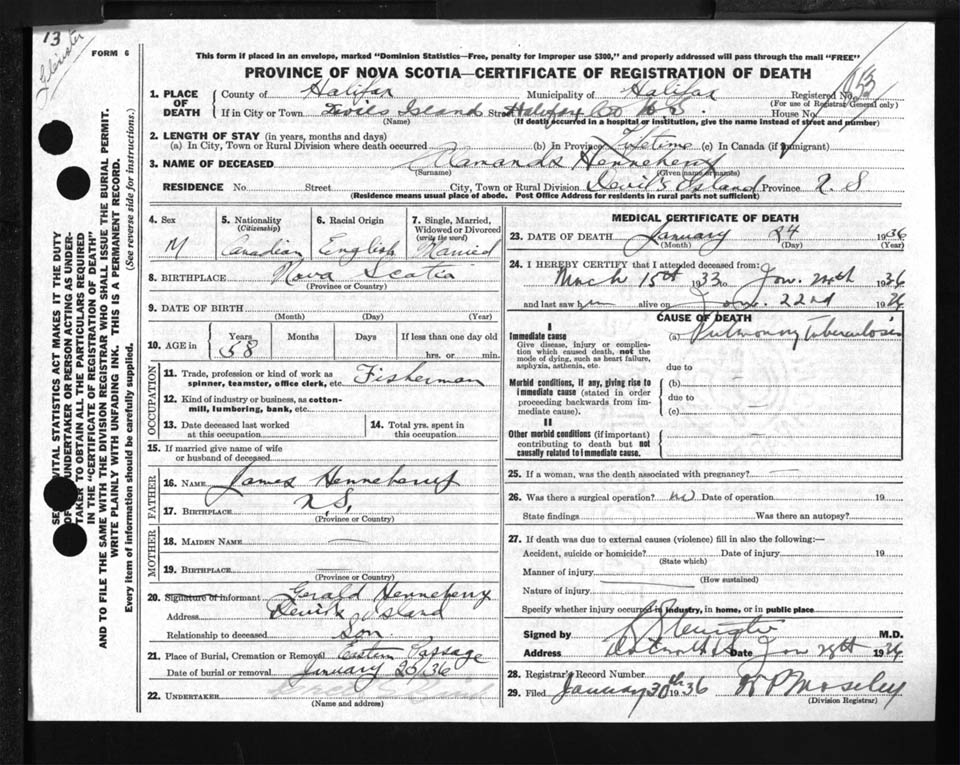 13
FORM 6
This form if placed in an envelope, marked "Dominion Statistics—Free, penalty for improper use $300," and properly addressed will pass through the mail "FREE"
PROVINCE OF NOVA SCOTIA—CERTIFICATE OF REGISTRATION OF DEATH
1. PLACE OF DEATH
County of Halifax Municipality of Halifax Registered No. 13
(For use of Registrar General only)
If in City or Town Devils Island Street Halifax Co N.S. House No.
(Name) (If death occurred in a hospital or institution, give the name instead of street and number)
2. LENGTH OF STAY (in years, months and days)
(a) In City, Town or Rural Division where death occurred (b) In Province Lifetime (c) In Canada (if immigrant)
3. NAME OF DECEASED Henneberry
(Surname) (Given name or names)
RESIDENCE No. Street City, Town or Rural Division Devil's Island Province N. S
(Residence means usual place of abode. Post Office Address for residents in rural parts not sufficient)
4. Sex M
5. Nationality (Citizenship) Canadian
6. Racial Origin English
7. Single, Married, Widowed or Divorced (write the word) Married
8. BIRTHPLACE Nova Scotia
(Province or Country)
9. DATE OF BIRTH
(Month) (Day) (Year)
10. AGE in Years 58 Months Days If less than one day hrs. or min.
OCCUPATION
11. Trade, profession or kind of work as spinner, teamster, office clerk, etc. Fisherman
12. Kind of industry or business, as cotton-mill, lumbering, bank, etc.
13. Date deceased last worked at this occupation
14. Total yrs. spent in this occupation
15. If married give name of wife or husband of deceased
FATHER
16. NAME James Henneberry
17. BIRTHPLACE N.S.
(Province or Country)
MOTHER
18. MAIDEN NAME —
19. BIRTHPLACE —
(Province or Country)
20. Signature of informant Gerald Henneberry
Address Devil's Island
Relationship to deceased Son
21. Place of Burial, Cremation or Removal Eastern Passage
Date of burial or removal January 26/36
22. UNDERTAKER
(Name and address)
MEDICAL CERTIFICATE OF DEATH
23. DATE OF DEATH January 24 1936
(Month) (Day) (Year)
24. I HEREBY CERTIFY that I attended deceased from:
March 15th 1933 to Jan. 24th 1936
and last saw him alive on Jan. 22nd 1936
CAUSE OF DEATH
I
Immediate cause (a) Pulmonary Tuberculosis
Give disease, injury or complication which caused death, not the mode of dying, such as heart failure, asphyxia, asthenia, etc.
due to
Morbid conditions, if any, giving rise to immediate cause (stated in order proceeding backwards from immediate cause).
(b)
due to
(c)
II
Other morbid conditions (if important) contributing to death but not causally related to immediate cause.
25. If a woman, was the death associated with pregnancy? —
26. Was there a surgical operation? no Date of operation 19
State findings Was there an autopsy?
27. If death was due to external causes (violence) fill in also the following:—
Accident, suicide or homicide? Date of injury 19
(State which)
Manner of injury
(How sustained)
Nature of injury
Specify whether injury occurred in industry, in home, or in public place
Signed by M.D.
Address Date Jan 1936
28. Registrar's Record Number
29. Filed January 30th 1936 R P Moseley
(Division Registrar)
VITAL STATISTICS ACT MAKES IT THE DUTY
UNDERTAKER OR PERSON ACTING AS UNDER-
TAKER TO OBTAIN ALL THE PARTICULARS REQUIRED
IN THE "CERTIFICATE OF REGISTRATION OF DEATH"
AND TO FILE THE SAME WITH THE DIVISION REGISTRAR WHO SHALL ISSUE THE BURIAL PERMIT.
WRITE PLAINLY WITH UNFADING INK. THIS IS A PERMANENT RECORD.
Every item of information should be carefully supplied. (See reverse side for instructions.)